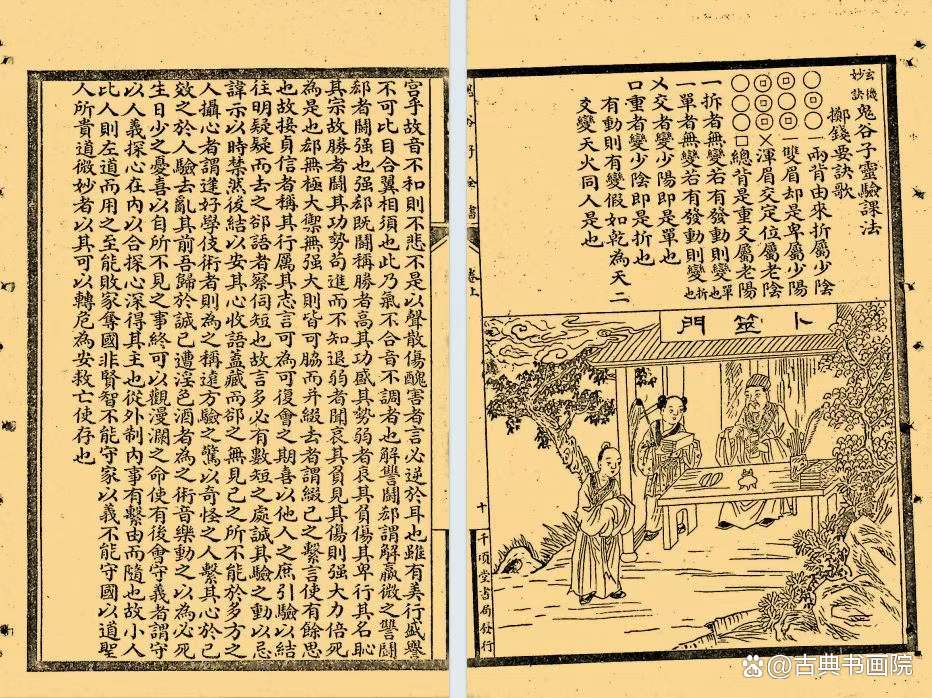 玄機妙訣 鬼谷子靈驗課法
擲錢要訣歌
一兩背由來折屬少陰
一雙眉却是卑屬少陽
乂渾眉交定位屬老陰
口總背是重爻屬老陽
一折者無變若有發動則變單也
一單者無變若有發動則變折也
乂交者變少陽即是單也
口重者變少陰即是折也
有動則有變假如乾為天二
爻變天火同人是也
卜筮門
全書
卷上
十
千頃堂書局發行
宮乎故音不和則不悲不是以聲散傷醜害者言必逆於耳也雖有美行盛譽
不可比目合翼相須也此乃氣不合音不調者也解讐鬭郄謂解羸微之讐鬭
郄者鬭强也强郄既鬭稱勝者高其功盛其勢弱者哀其負傷其卑行其名恥
其宗故勝者鬭其功勢苟進而不知退弱者聞哀其負見其傷則强大力倍死
為是也郄無極大禦無强大則皆可脇而并綴去者謂綴己之繫言使有餘思
也故接貞信者稱其行厲其志言可為可復會之期喜以他人之庶引驗以結
往明疑疑而去之郄語者察伺短也故言多必有數短之處誠其驗之動以忌
諱示以時禁然後結以安其心收語蓋藏而郄之無見己之所不能於多方之
人攝心者謂逢好學伎術者則為之稱遠方驗之驚以奇怪之人繫其心於己
效之於人驗去亂其前吾歸於誠己遭淫色酒者為之術音樂動之以為必死
生日少之憂喜以自所不見之事終可以觀漫瀾之命使有後會守義者謂守
以人義探心在內以合探心深得其主也從外制內事有繫由而隨也故小人
比人則左道而用之至能敗家奪國非賢智不能守家以義不能守國以道聖
人所貴道微妙者以其可以轉危為安救亡使存也
@古典书画院